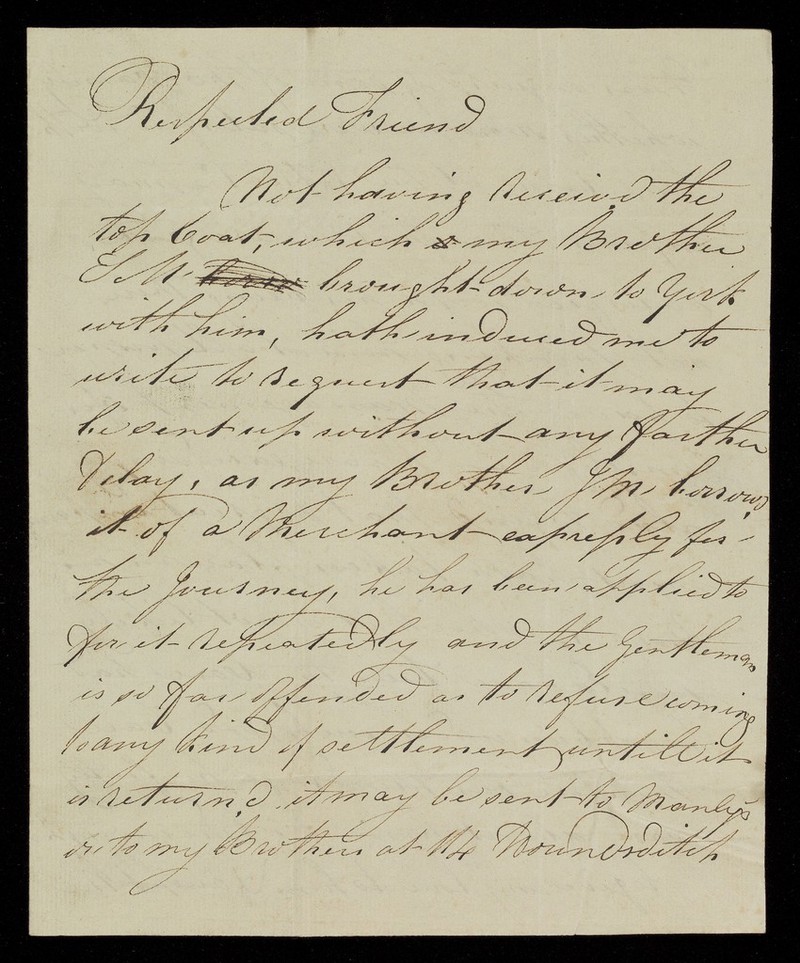 Respected Friend
Not having receiv'd the
top Coat, which my Brother
E M brought down to York
with him, hath induced me to
write to request that it may
be sent up without any farther
Delay, as my Brother J M borrow'd
it of a Merchant expressly for
the Journey, he has been applied to
for it repeatedly and the Gentleman
is so far offended as to refuse coming
to any kind of settlement untill it
is return'd. it may be sent to Manley's
or to my Brothers at 14 Houndsditch